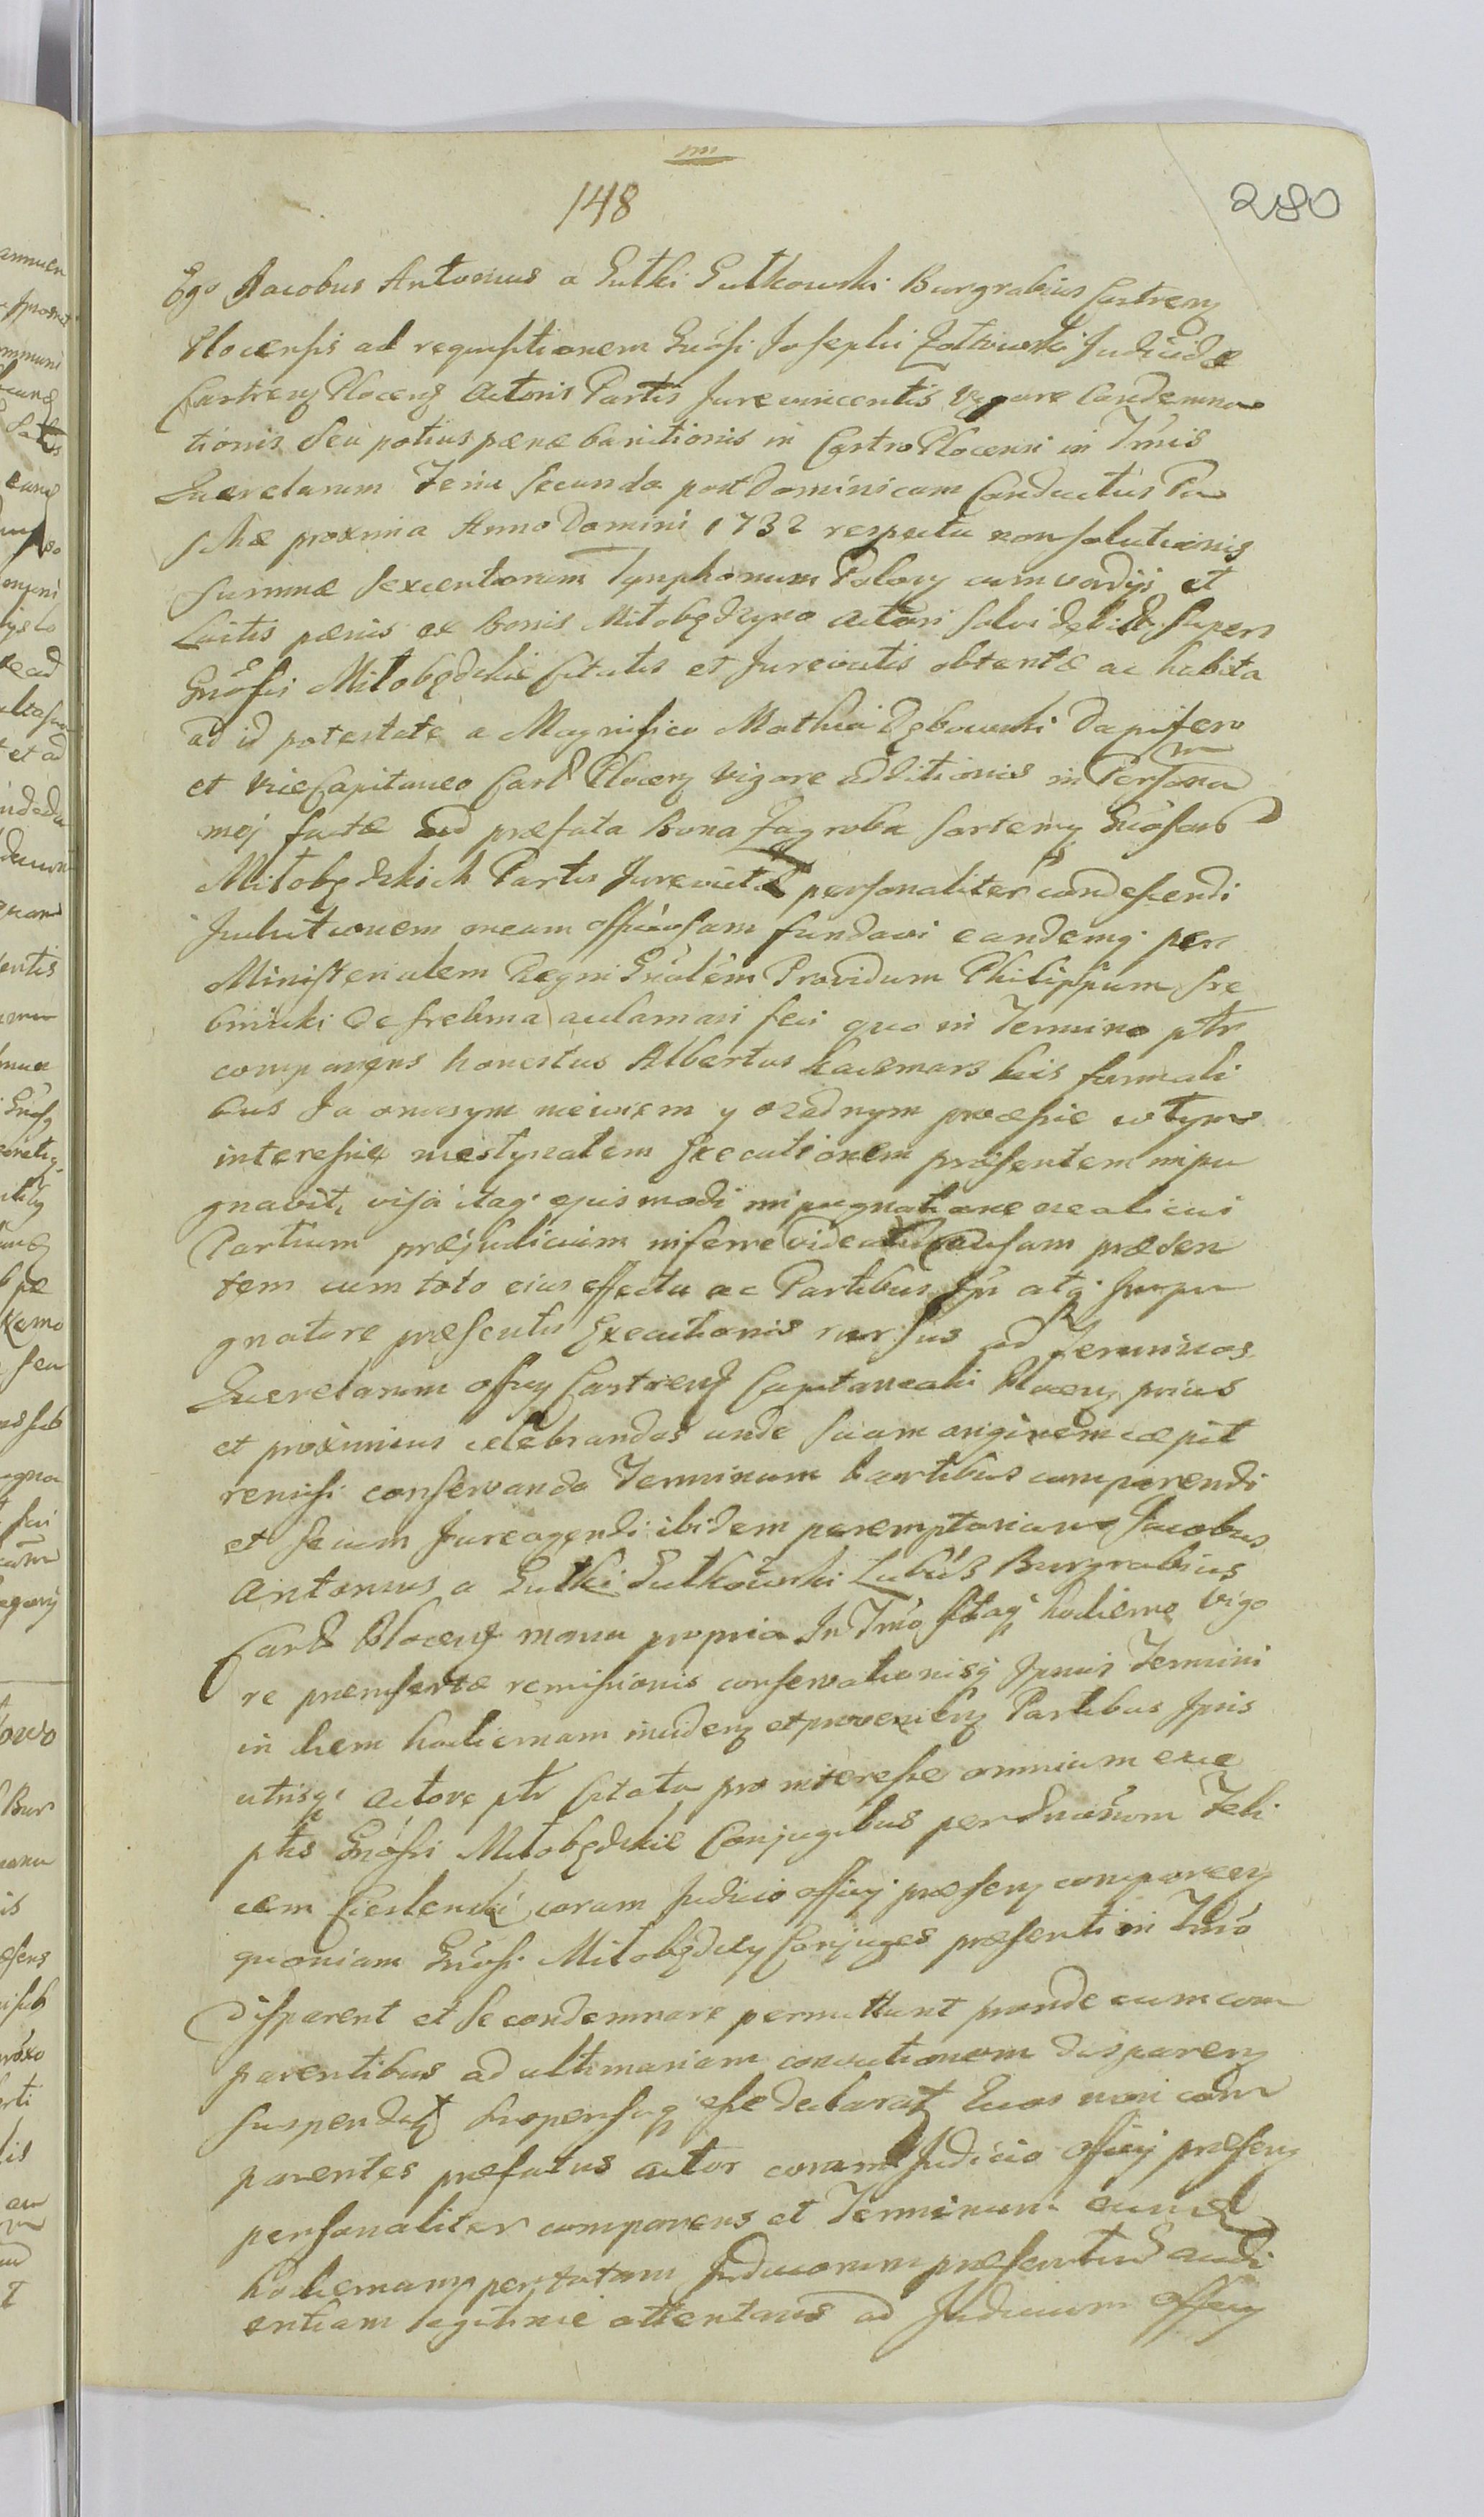 148
280
Ego Jacobus Antonius a Gutki Gutkowski Burgrabius Castreng
Plocensis ad requisitionem Gnosi Josephi Zołtowski
Castreng Plocens Actoris Partis Jurevincentis Vigore Condemna
tionis Seu potius pænæ banitionis in Castro Plocensi in Tmis
Querelarum Feria Secunda post Dominicam Conductus Pa
schæ proxima Anno Domini 1732 respectu non solutionis
Summæ Sexcentorum Tynphonum Polonq cum vadijs et
Luitis pænis ex bonis Miłobędzyno Actori Solvi debit Super
Gnosis Miłobędzkie Citatis et Jurevictis obtentæ ac habita
ad id potestate a Magnifico Mathia Dębowski Dapifero
et ViceCapitaneo Cast Plocenq Vigore additionis in Persona
mej factæ ad præfata Bona Zagroba Sortemq Gnosorb
Miłobędzkich Partis Jurevictæ personaliter condescendi
Juditionem meam officiosam fundavi eandemq per
Ministerialem Regni Gnalem Providum Philippum Sre
bnicki de Srebrna aclamari feci quo in Termino ptr
comparens honestus Albertus Kaczmars his formali
bus Ja
interesie mestyncatem Executionem præsentem impu
gnavit, visa itaq ejusmodi impugnatione ne alicui
Partium præjudicium inferre videat Causam præsen
tem cum toto eius effectu ac Partibus Jpis atq Impu
gnatore præsentis Executionis rursus ad Terminos
Querelarum officij Castrens Capitanealis Plocenq prius
et proximius celebrandos unde Suam originem cæpit
remisi conservando Terminum Partibus comparendi
et Secum Jure agendi ibidem peremptorium Jacobus
Antonius a Gutki Gutkowski Burgrabius
Cast Plocens manu propria In Tmo Itaq hodierno Vigo
re præinsertæ remissionis conservationisq Jpsius Termini
in diem hodiernam incidenq et provenienq Partibus Jpsis
utrisq Actore ptr Citata pro interesse omnium exce
ptis Gnosis Miłobędzkie Conjugibus per Gnosum Feli
cem Cieslenski coram Judicio officij præsenq comparenq
quoniam Gnosi Miłobędzcy Conjuges præsenti in Tmo
disparent et Se condemnare permittunt proinde eum com
parentibus ad ultimariam convictionem disparenq
Suspendatq Suspensaq esse declarat Quos non com
parentes præfatus actor coram Judicio officij præsenq
personaliter comparens et Terminum eund
hodiernum per totam Judiciorum præsentiu audi
entiam legitime attentans ad Judicium officij